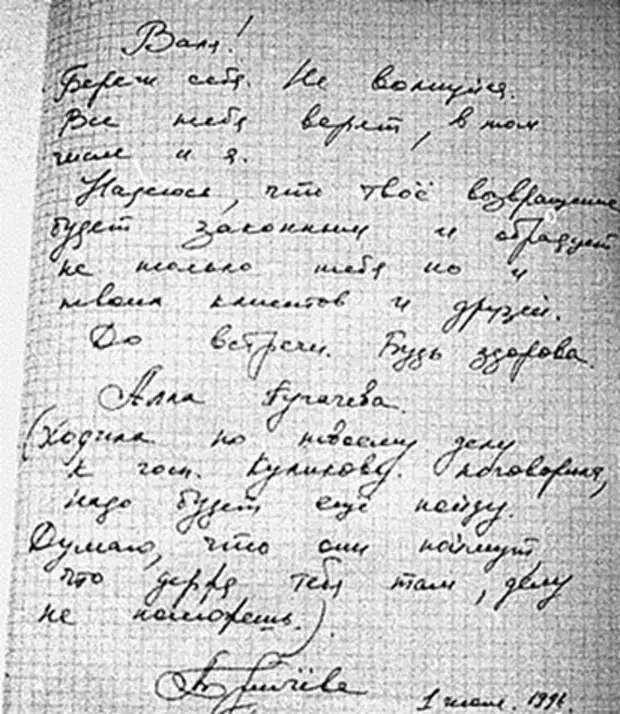 Валя!
Береги себя. Не волнуйся.
Все тебя верят, в том
числе и я.
Надеюсь, что твоё возвращение
будет законным и обрадует
не только тебя но и
твоих клиентов и друзей.
До встречи. Будь здорова.
Алла Пугачева.
(Ходила по твоему делу
к госп. Куликову. Поговорила,
надо будет ещё пойду.
Думаю, что они поймут
что держа тебя там, делу
не поможешь.)
1 1996.